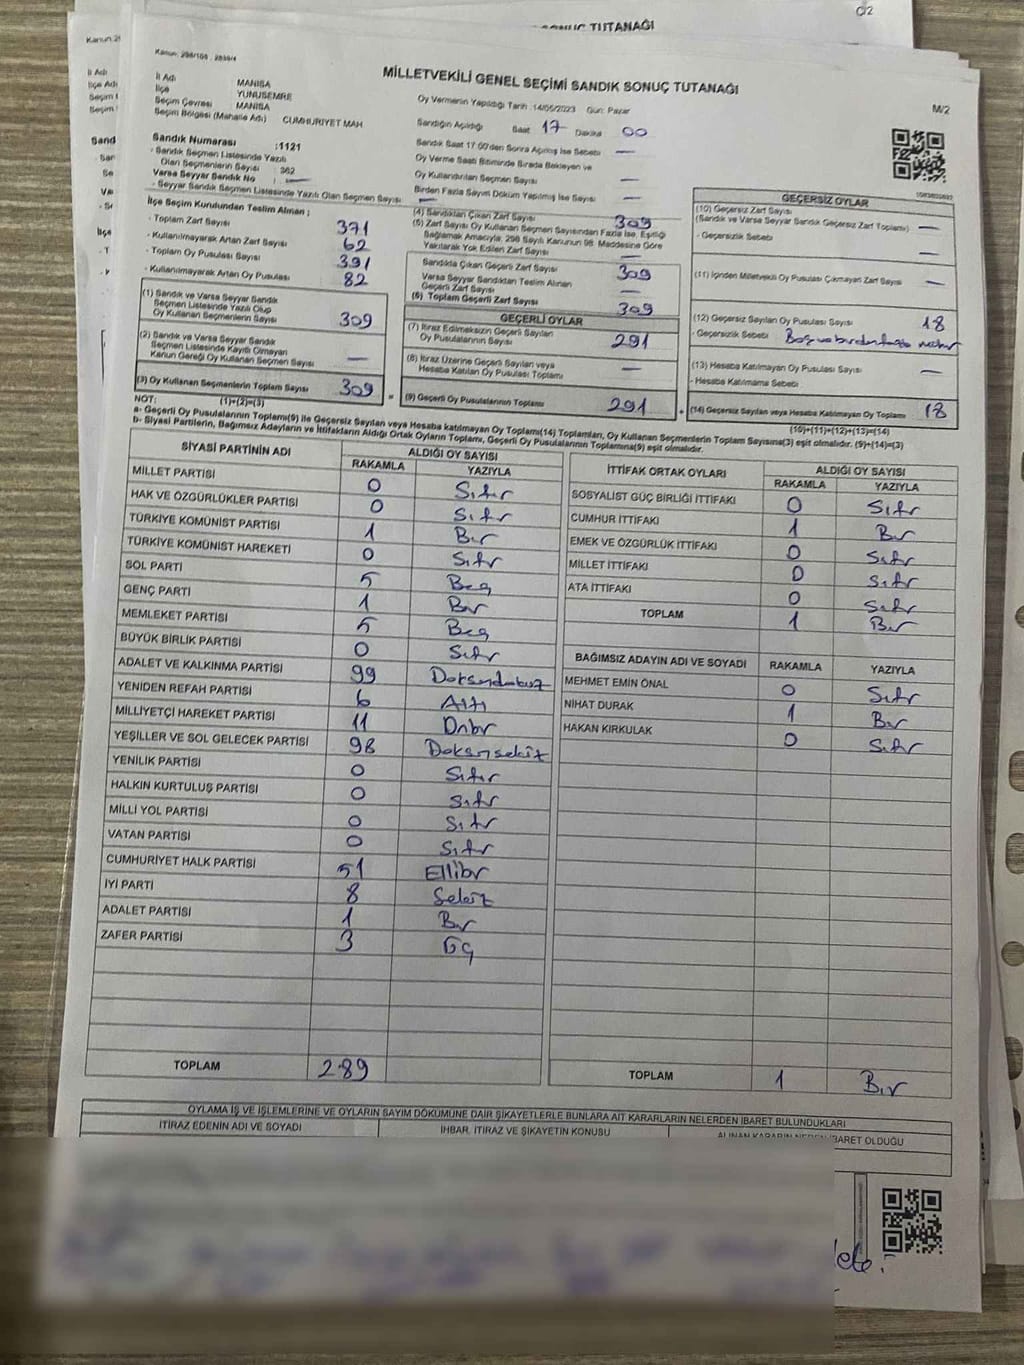 C/2
SONUÇ TUTANAĞI
Kanun: 298/105 , 2839/4
MİLLETVEKİLİ GENEL SEÇİMİ SANDIK SONUÇ TUTANAĞI
M/2
İl Adı MANİSA
İlçe YUNUSEMRE
Seçim Çevresi MANİSA
Seçim Bölgesi (Mahalle Adı) CUMHURİYET MAH
Oy Vermenin Yapıldığı Tarih :14/05/2023 Gün: Pazar
Sandığın Açıldığı Saat 17 Dakika 00
Sandık Numarası :1121
- Sandık Seçmen Listesinde Yazılı
Olan Seçmenlerin Sayısı : 362
Varsa Seyyar Sandık No —
- Seyyar Sandık Seçmen Listesinde Yazılı Olan Seçmen Sayısı: —
Sandık Saat 17.00'den Sonra Açılmış İse Sebebi —
Oy Verme Saati Bitiminde Sırada Bekleyen ve
Oy Kullandırılan Seçmen Sayısı —
Birden Fazla Sayım Döküm Yapılmış İse Sayısı —
İlçe Seçim Kurulundan Teslim Alınan ;
- Toplam Zarf Sayısı 371
- Kullanılmayarak Artan Zarf Sayısı 62
- Toplam Oy Pusulası Sayısı 391
- Kullanılmayarak Artan Oy Pusulası 82
(1) Sandık ve Varsa Seyyar Sandık
Seçmen Listesinde Yazılı Olup
Oy Kullanan Seçmenlerin Sayısı 309
(2) Sandık ve Varsa Seyyar Sandık
Seçmen Listesinde Kayıtlı Olmayan
Kanun Gereği Oy Kullanan Seçmen Sayısı —
(3) Oy Kullanan Seçmenlerin Toplam Sayısı 309
(4) Sandıktan Çıkan Zarf Sayısı 309
(5) Zarf Sayısı Oy Kullanan Seçmen Sayısından Fazla İse, Eşitliği
Sağlamak Amacıyla, 298 Sayılı Kanunun 98. Maddesine Göre
Yakılarak Yok Edilen Zarf Sayısı —
Sandıkta Çıkan Geçerli Zarf Sayısı 309
Varsa Seyyar Sandıktan Teslim Alınan
Geçerli Zarf Sayısı —
(6) Toplam Geçerli Zarf Sayısı 309
GEÇERLİ OYLAR
(7) İtiraz Edilmeksizin Geçerli Sayılan
Oy Pusulalarının Sayısı 291
(8) İtiraz Üzerine Geçerli Sayılan veya
Hesaba Katılan Oy Pusulası Toplamı —
= (9) Geçerli Oy Pusulalarının Toplamı 291
GEÇERSİZ OYLAR
(10) Geçersiz Zarf Sayısı
(Sandık ve Varsa Seyyar Sandık Geçersiz Zarf Toplamı) —
- Geçersizlik Sebebi —
(11) İçinden Milletvekili Oy Pusulası Çıkmayan Zarf Sayısı —
(12) Geçersiz Sayılan Oy Pusulası Sayısı 18
- Geçersizlik Sebebi Boş ve birden fazla mühür
(13) Hesaba Katılmayan Oy Pusulası Sayısı —
- Hesaba Katılmama Sebebi
+ (14) Geçersiz Sayılan veya Hesaba Katılmayan Oy Toplamı 18
NOT: (1)+(2)=(3)
(10)+(11)+(12)+(13)=(14)
a- Geçerli Oy Pusulalarının Toplamı(9) ile Geçersiz Sayılan veya Hesaba katılmayan Oy Toplamı(14) Toplamları, Oy Kullanan Seçmenlerin Toplam Sayısına(3) eşit olmalıdır. (9)+(14)=(3)
b- Siyasi Partilerin, Bağımsız Adayların ve İttifakların Aldığı Ortak Oyların Toplamı, Geçerli Oy Pusulalarının Toplamına(9) eşit olmalıdır.
SİYASİ PARTİNİN ADI ALDIĞI OY SAYISI
RAKAMLA YAZIYLA
MİLLET PARTİSİ 0 Sıfır
HAK VE ÖZGÜRLÜKLER PARTİSİ 0 Sıfır
TÜRKİYE KOMÜNİST PARTİSİ 1 Bir
TÜRKİYE KOMÜNİST HAREKETİ 0 Sıfır
SOL PARTİ 5 Beş
GENÇ PARTİ 1 Bir
MEMLEKET PARTİSİ 5 Beş
BÜYÜK BİRLİK PARTİSİ 0 Sıfır
ADALET VE KALKINMA PARTİSİ 99 Doksandokuz
YENİDEN REFAH PARTİSİ 6 Altı
MİLLİYETÇİ HAREKET PARTİSİ 11 Onbir
YEŞİLLER VE SOL GELECEK PARTİSİ 98 Doksansekiz
YENİLİK PARTİSİ 0 Sıfır
HALKIN KURTULUŞ PARTİSİ 0 Sıfır
MİLLİ YOL PARTİSİ 0 Sıfır
VATAN PARTİSİ 0 Sıfır
CUMHURİYET HALK PARTİSİ 51 Ellibir
İYİ PARTİ 8 Sekiz
ADALET PARTİSİ 1 Bir
ZAFER PARTİSİ 3 Üç
TOPLAM 289
İTTİFAK ORTAK OYLARI ALDIĞI OY SAYISI
RAKAMLA YAZIYLA
SOSYALİST GÜÇ BİRLİĞİ İTTİFAKI 0 Sıfır
CUMHUR İTTİFAKI 1 Bir
EMEK VE ÖZGÜRLÜK İTTİFAKI 0 Sıfır
MİLLET İTTİFAKI 0 Sıfır
ATA İTTİFAKI 0 Sıfır
TOPLAM 1 Bir
BAĞIMSIZ ADAYIN ADI VE SOYADI RAKAMLA YAZIYLA
MEHMET EMİN ÖNAL 0 Sıfır
NİHAT DURAK 1 Bir
HAKAN KIRKULAK 0 Sıfır
TOPLAM 1 Bir
OYLAMA İŞ VE İŞLEMLERİNE VE OYLARIN SAYIM DÖKÜMÜNE DAİR ŞİKAYETLERLE BUNLARA AİT KARARLARIN NELERDEN İBARET BULUNDUKLARI
İTİRAZ EDENİN ADI VE SOYADI İHBAR, İTİRAZ VE ŞİKAYETİN KONUSU ALINAN KARARIN NEDEN İBARET OLDUĞU